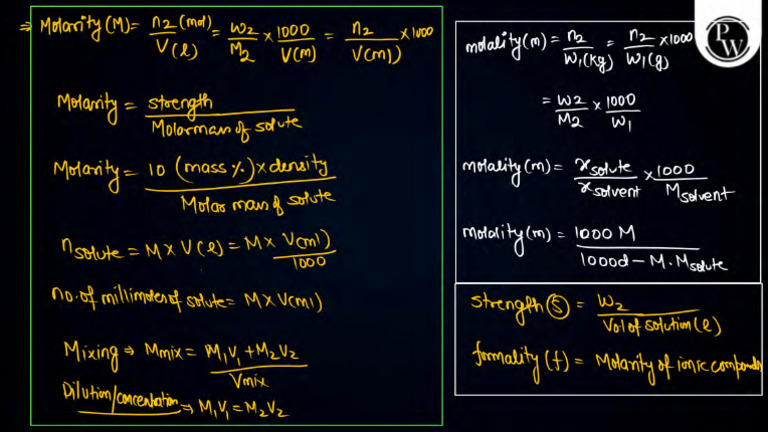 ⇒ Molarity (M) = n₂ (mol) / V(l) = w₂/M₂ × 1000/V(ml) = n₂/V(ml) × 1000
Molarity = strength / Molar mass of solute
Molarity = 10 (mass %) × density / Molar mass of solute
n solute = M × V(l) = M × V(ml)/1000
no. of millimoles of solute = M × V(ml)
Mixing ⇒ Mmix = M₁V₁ + M₂V₂ / Vmix
Dilution/concentration ⇒ M₁V₁ = M₂V₂
molality (m) = n₂/W₁(kg) = n₂/W₁(g) × 1000
= W₂/M₂ × 1000/W₁
molality (m) = x solute / x solvent × 1000 / M solvent
molality (m) = 1000 M / 1000d − M. M solute
strength (S) = W₂ / Vol of solution (l)
formality (f) = Molarity of ionic compounds
PW